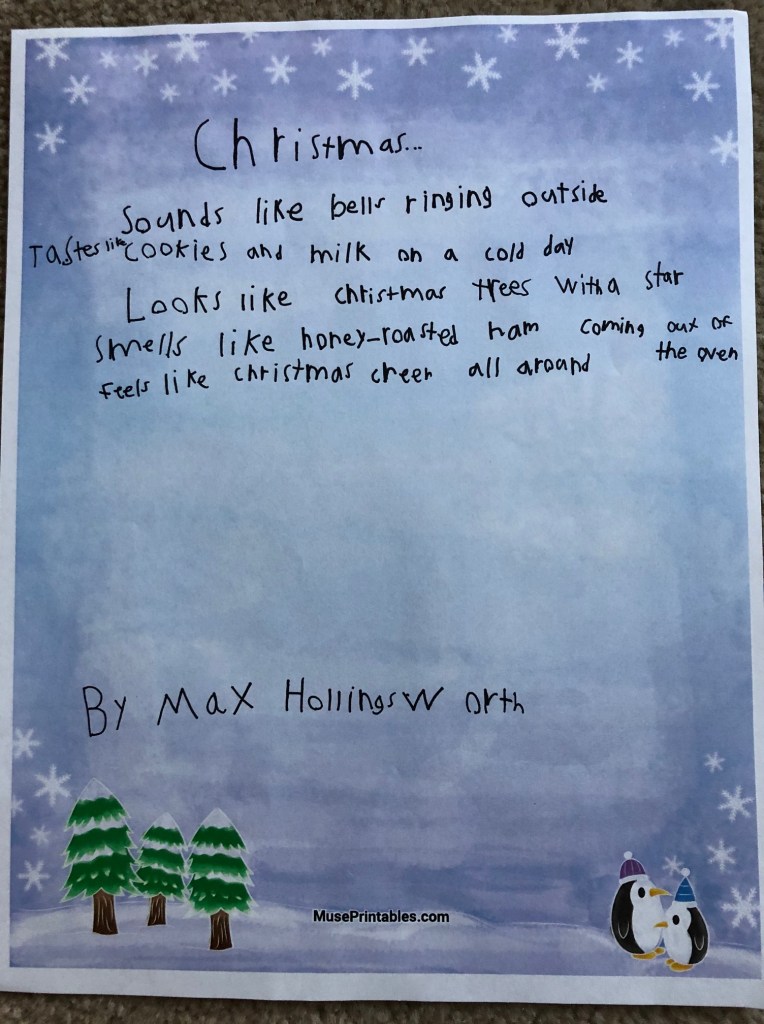 Christmas...
Sounds like bells ringing outside
Tastes like cookies and milk on a cold day
Looks like christmas trees with a star
Smells like honey-roasted ham coming out of
the oven
Feels like christmas cheer all around
By Max Hollingsworth
MusePrintables.com